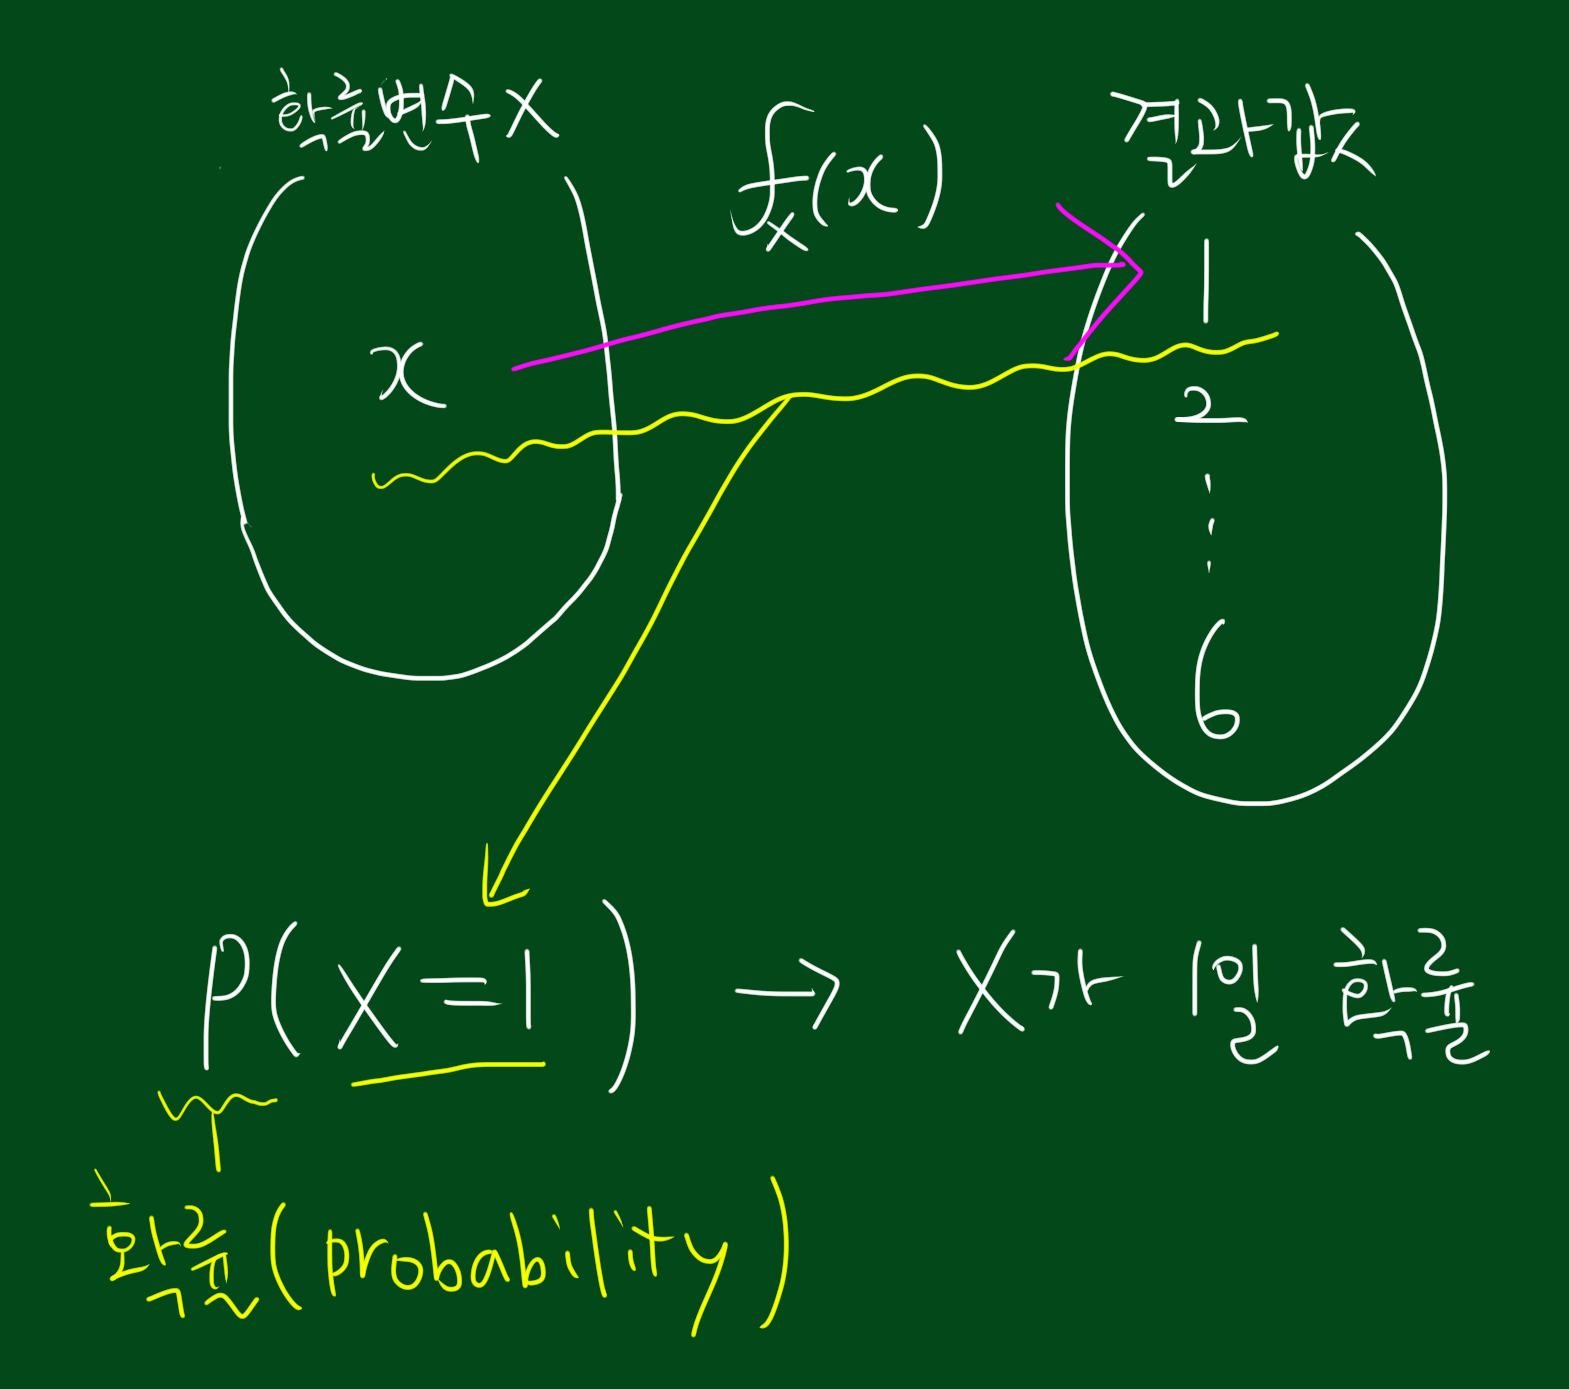 확률변수 X
f_X(x)
결과값
x
1
2
⋮
6
P(X=1) → X가 1일 확률
확률(probability)